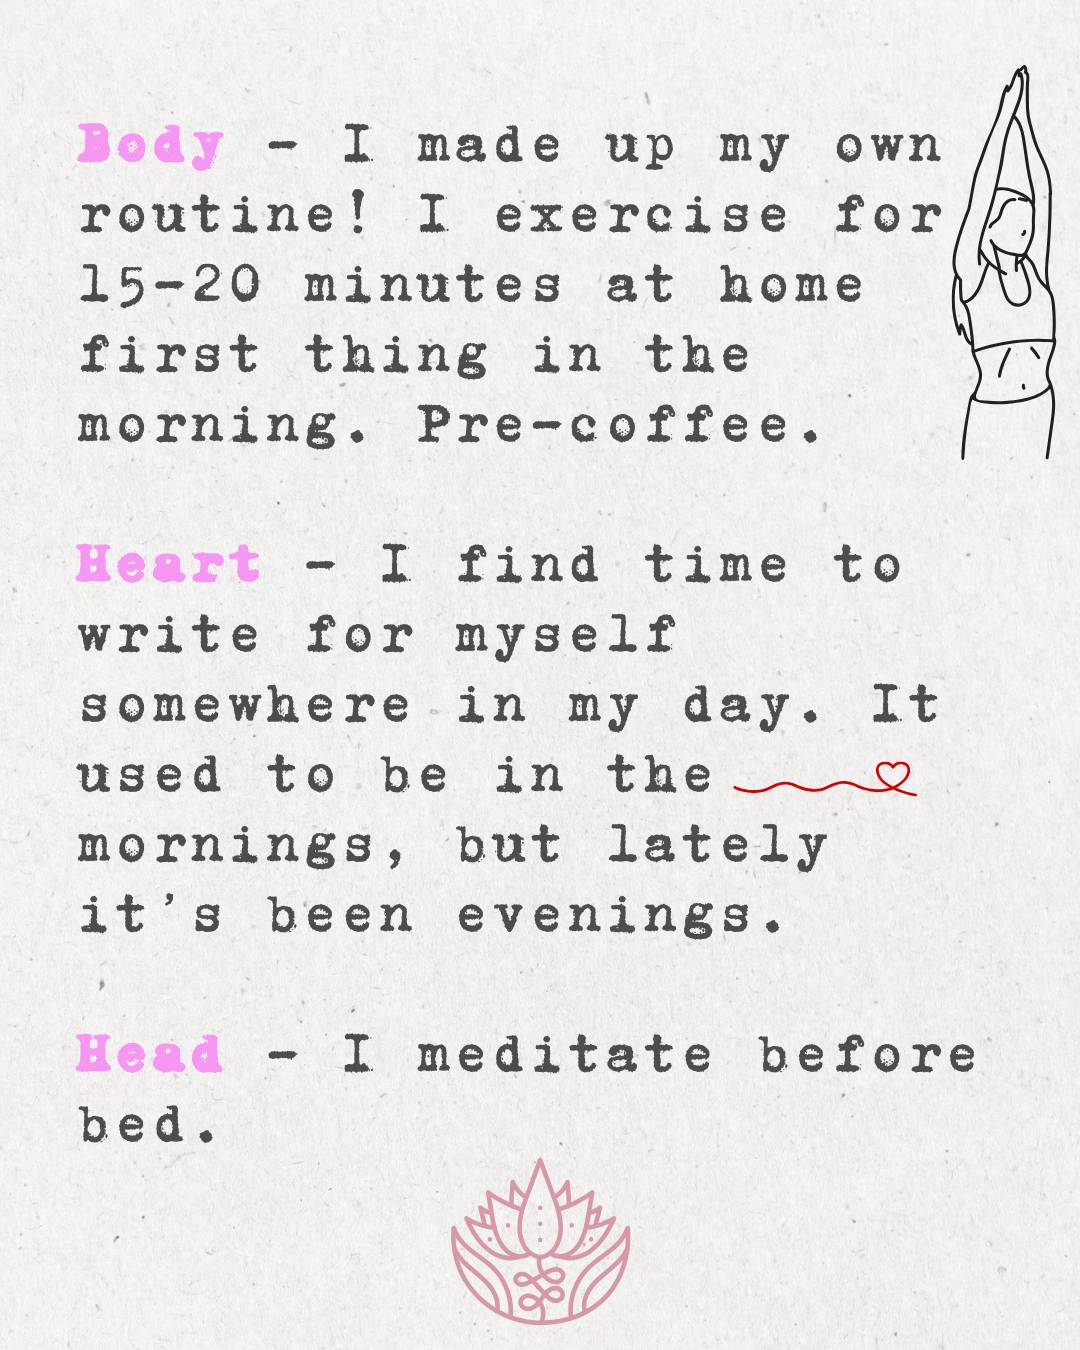 Body - I made up my own
routine! I exercise for
15-20 minutes at home
first thing in the
morning. Pre-coffee.
Heart - I find time to
write for myself
somewhere in my day. It
used to be in the
mornings, but lately
it's been evenings.
Head - I meditate before
bed.